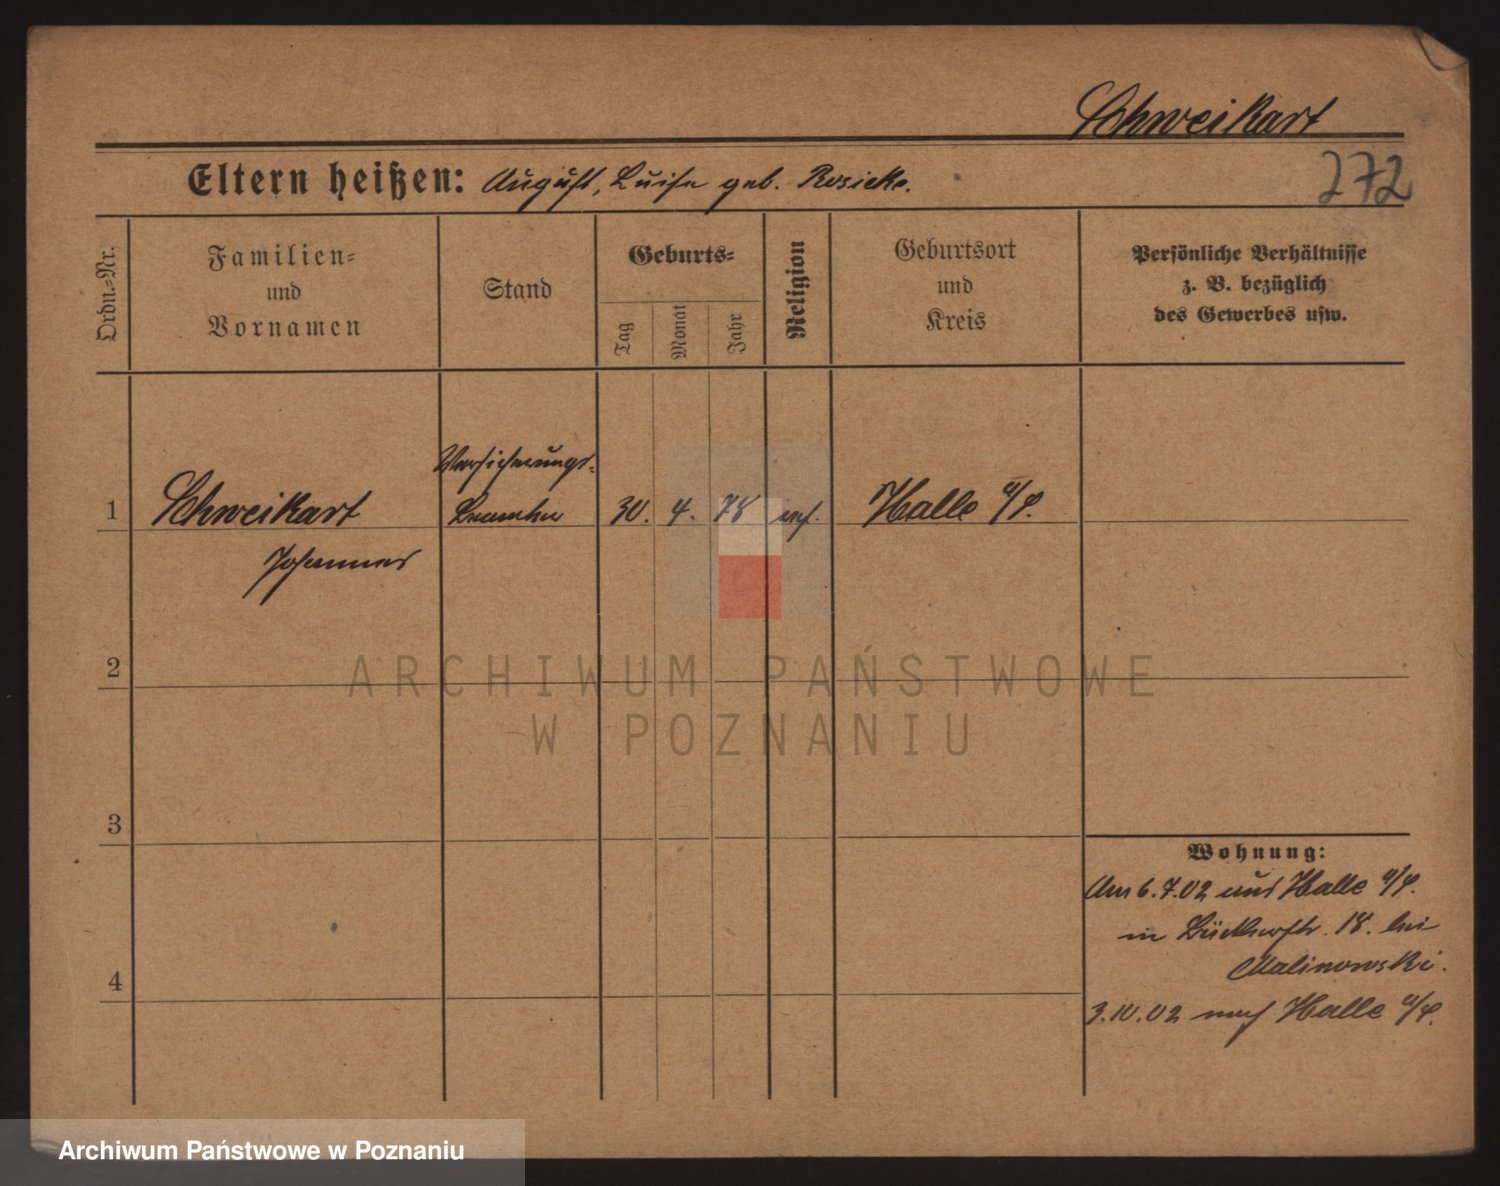 Schweikart
272
Eltern heißen: August, Luise geb. Rosicke.
Ordn.-Nr.
Familien-
und
Vornamen
Stand
Geburts-
Tag
Monat
Jahr
Religion
Geburtsort
und
Kreis
Persönliche Verhältnisse
z. B. bezüglich
des Gewerbes usw.
Versicherungs-
1 Schweikart Beamter 30. 4. 78 Halle a/S.
Johannes
2
3
4
Wohnung:
Am 6.7.02 aus Halle a/S.
in 18. bei
Malinowski.
3.10.02 nach Halle a/S.
ARCHIWUM PAŃSTWOWE
W POZNANIU
Archiwum Państwowe w Poznaniu